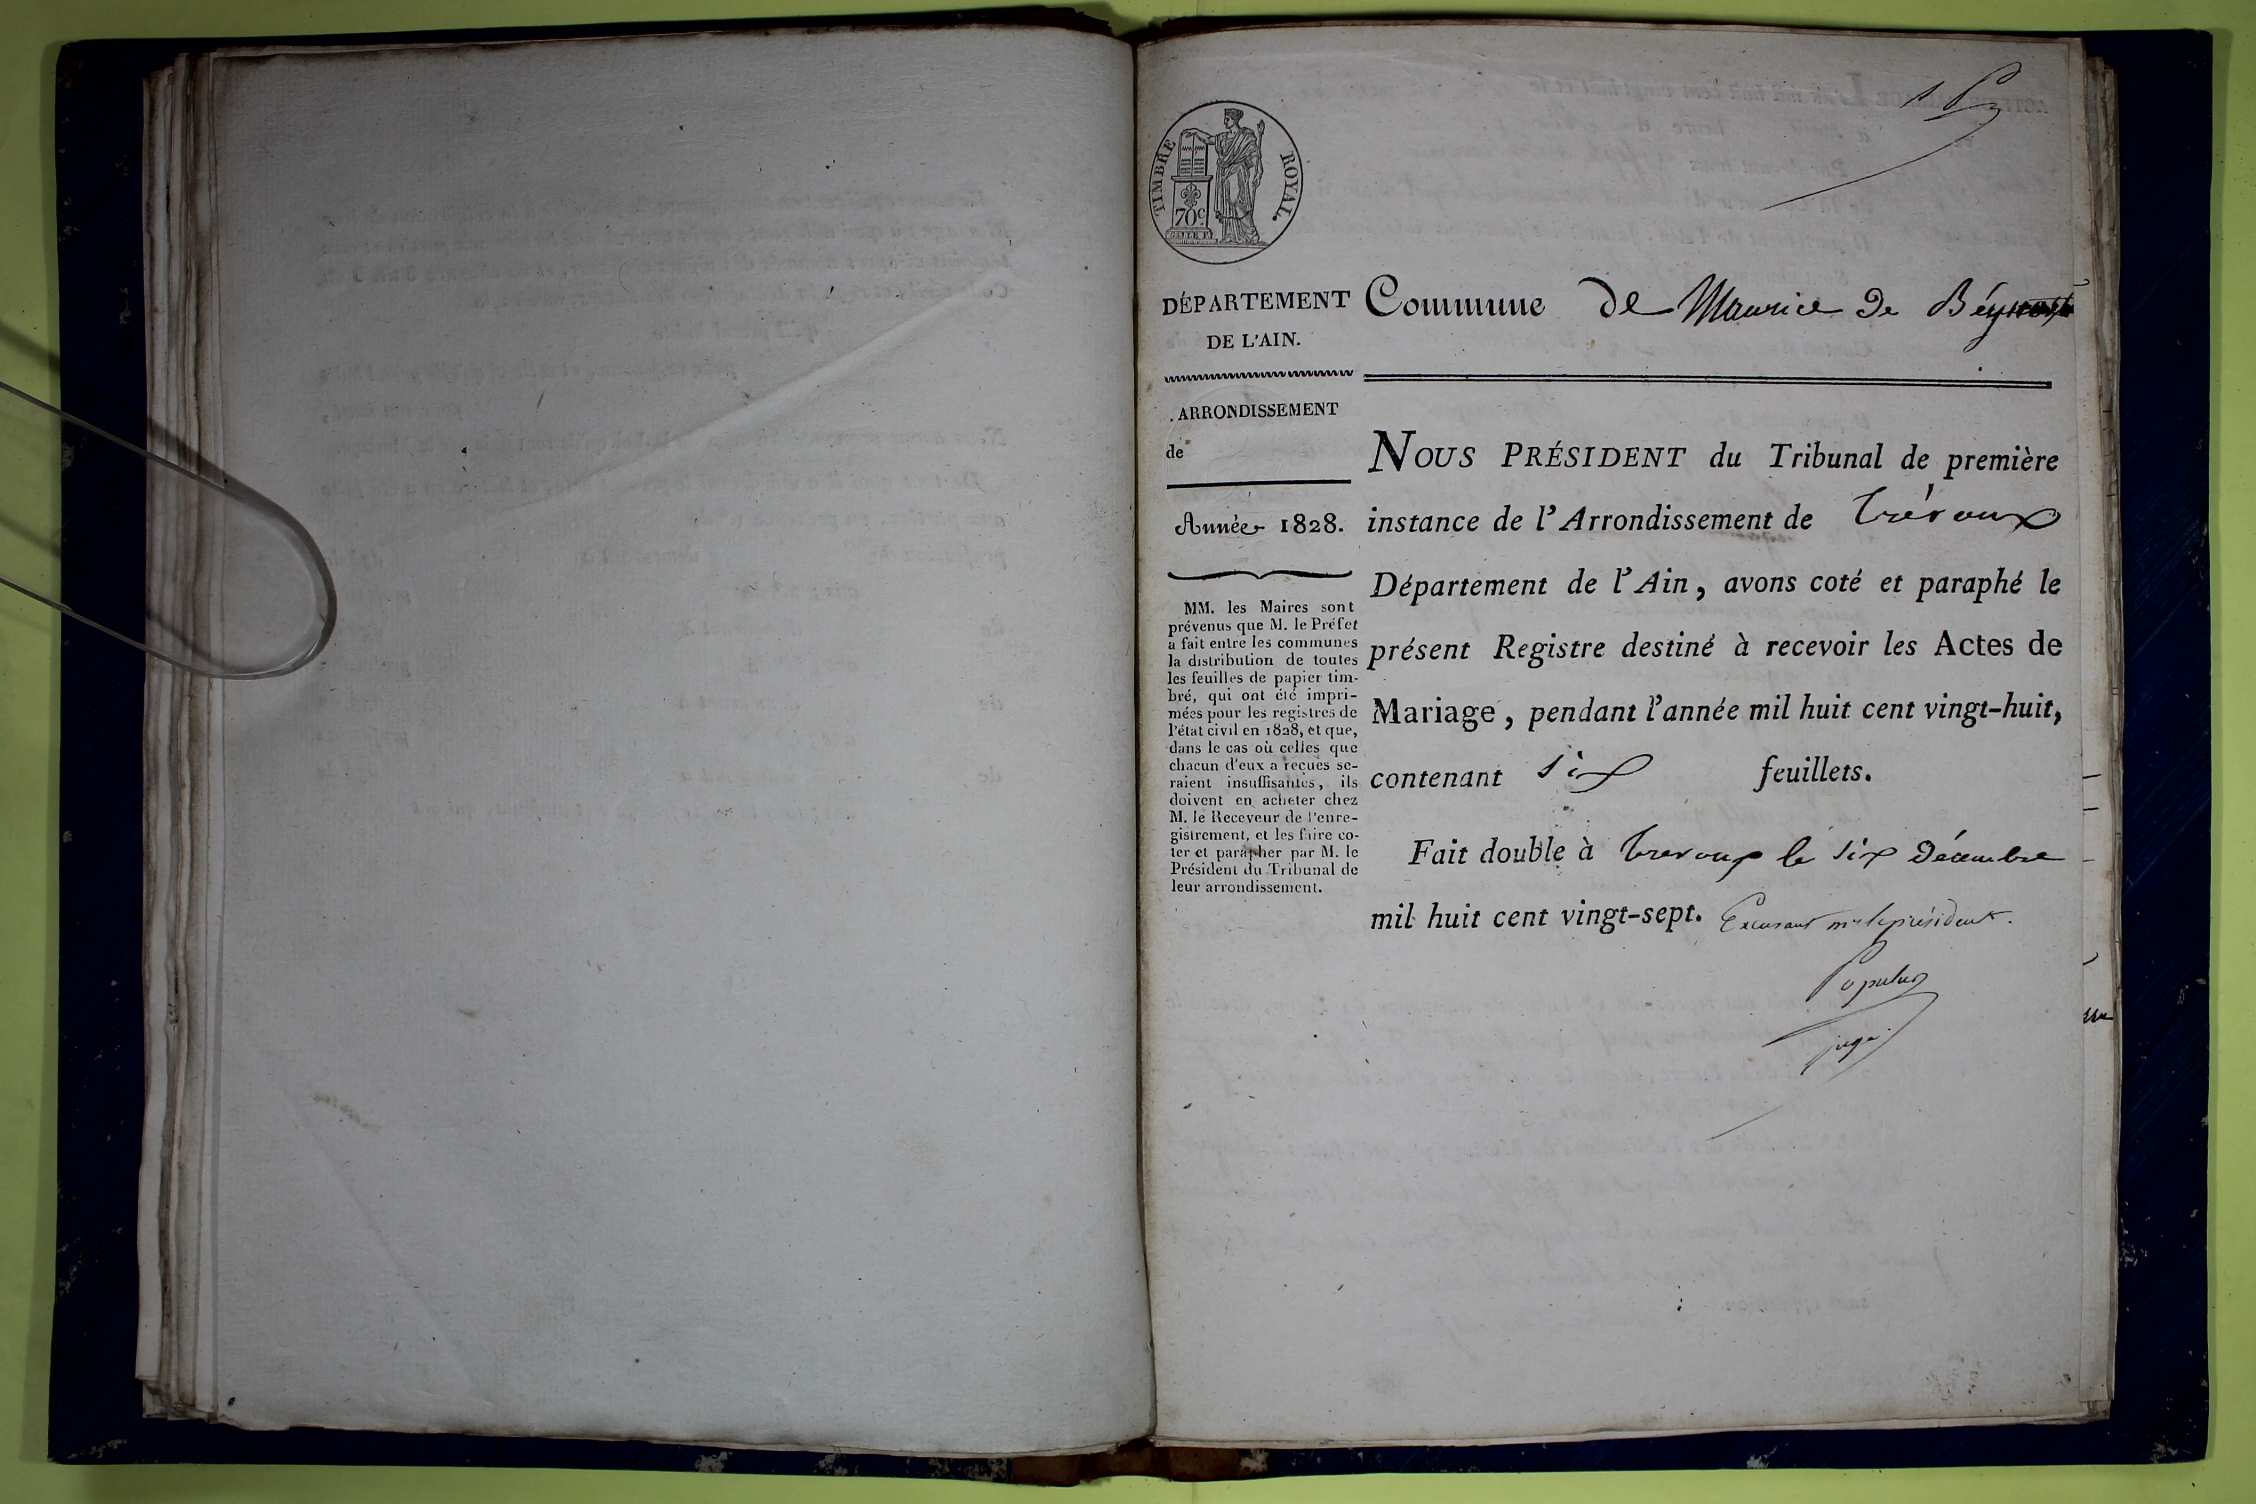 TIMBRE ROYAL.
70c
DÉPARTEMENT
DE L'AIN.
ARRONDISSEMENT
de
Année 1828.
MM. les Maires sont
prévenus que M. le Préfet
a fait entre les communes
la distribution de toutes
les feuilles de papier tim-
bré, qui ont été impri-
mées pour les registres de
l'état civil en 1828, et que,
dans le cas où celles que
chacun d'eux a reçues se-
raient insuffisantes, ils
doivent en acheter chez
M. le Receveur de l'enre-
gistrement, et les faire co-
ter et parapher par M. le
Président du Tribunal de
leur arrondissement.
Commune de Maurice de Béynost
NOUS PRÉSIDENT du Tribunal de première
instance de l'Arrondissement de Trévoux
Département de l'Ain, avons coté et paraphé le
présent Registre destiné à recevoir les Actes de
Mariage, pendant l'année mil huit cent vingt-huit,
contenant six feuillets.
Fait double à Trevoux le six Décembre
mil huit cent vingt-sept. Excusant mr le président.
Populus
juge